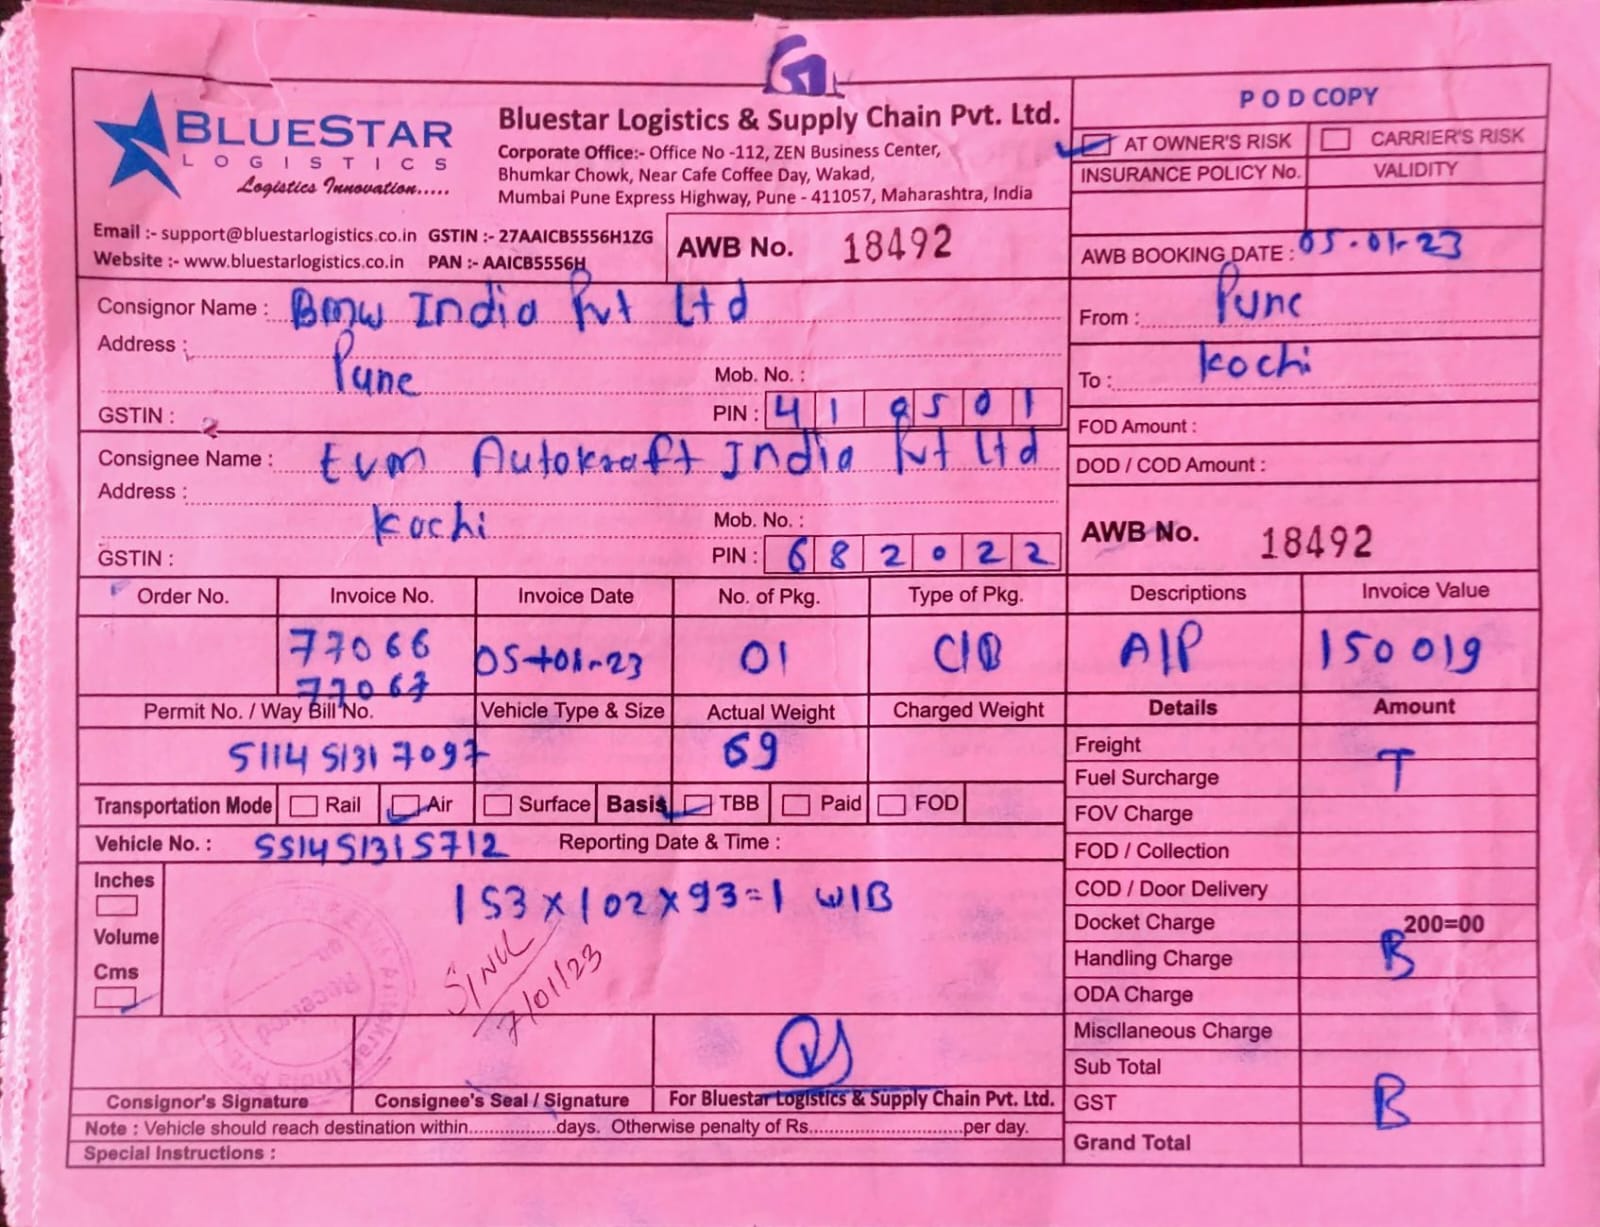 BLUESTAR
LOGISTICS
Logistics Innovation.....
Bluestar Logistics & Supply Chain Pvt. Ltd.
Corporate Office:- Office No -112, ZEN Business Center,
Bhumkar Chowk, Near Cafe Coffee Day, Wakad,
Mumbai Pune Express Highway, Pune - 411057, Maharashtra, India
Email :- support@bluestarlogistics.co.in GSTIN :- 27AAICB5556H1ZG
Website :- www.bluestarlogistics.co.in PAN :- AAICB5556H
AWB No. 18492
POD COPY
AT OWNER'S RISK CARRIER'S RISK
INSURANCE POLICY No. VALIDITY
AWB BOOKING DATE : 05-01-23
Consignor Name : BMW India Pvt Ltd
Address : Pune
Mob. No. :
GSTIN : PIN : 410501
From : Pune
To : Kochi
FOD Amount :
DOD / COD Amount :
Consignee Name : Evm Autokraft India Pvt Ltd
Address : Kochi
Mob. No. :
GSTIN : PIN : 682022
AWB No. 18492
Order No. Invoice No. Invoice Date No. of Pkg. Type of Pkg. Descriptions Invoice Value
77066 05-01-23 01 C/B A/P 150019
77067
Permit No. / Way Bill No. Vehicle Type & Size Actual Weight Charged Weight Details Amount
511451317097 69
Transportation Mode Rail Air Surface Basis TBB Paid FOD
Vehicle No. : 551451315712 Reporting Date & Time :
Inches
Volume
Cms
153x102x93=1 W/B
7/01/23
Freight
Fuel Surcharge T
FOV Charge
FOD / Collection
COD / Door Delivery
Docket Charge 200=00
Handling Charge B
ODA Charge
Miscllaneous Charge
Sub Total
GST B
Grand Total
Received
Consignor's Signature Consignee's Seal / Signature For Bluestar Logistics & Supply Chain Pvt. Ltd.
Note : Vehicle should reach destination within................days. Otherwise penalty of Rs............................per day.
Special Instructions :